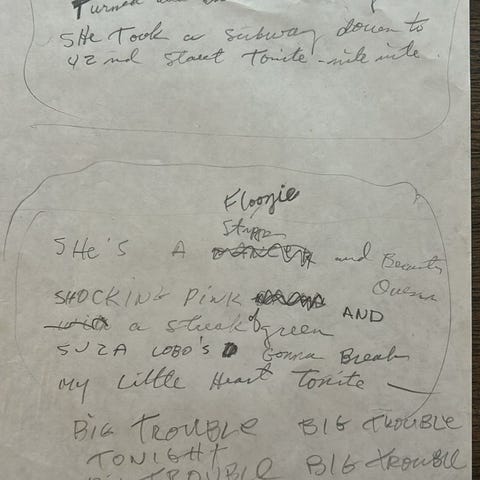 Turned
SHe Took a subway down to
42nd Street Tonite - nite nite.
Floozie
Stripper
SHE'S A DANCER and Beauty
Queen
SHOCKING PINK AND
with a streak of green
SUZA LOBO'S Gonna Break
My Little Heart Tonite —
BIG TROUBLE BIG TROUBLE
TONIGHT
BIG TROUBLE BIG TROUBLE